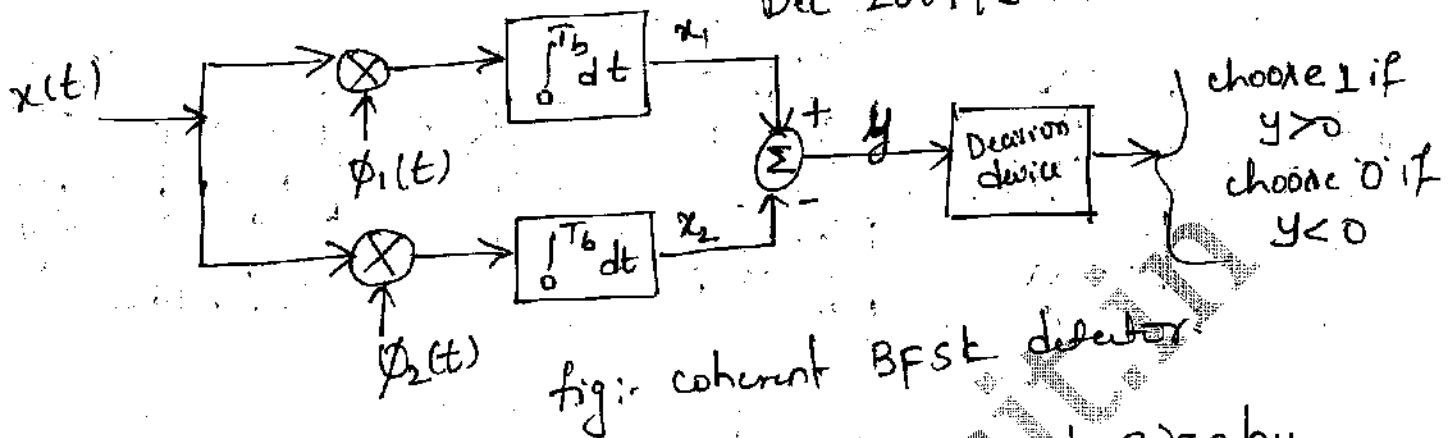 Dec
x(t)
∫₀^Tb dt
x₁
ϕ₁(t)
+
Σ
-
y
Decision device
choose 1 if
y>0
choose '0' if
y<0
∫₀^Tb dt
x₂
ϕ₂(t)
fig:- coherent BFSK detector